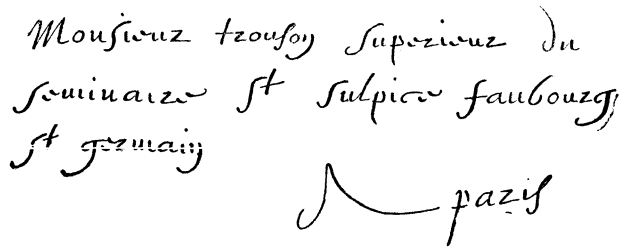 Monsieur tronson superieur du
seminaire st sulpice faubourg
st germain
A paris